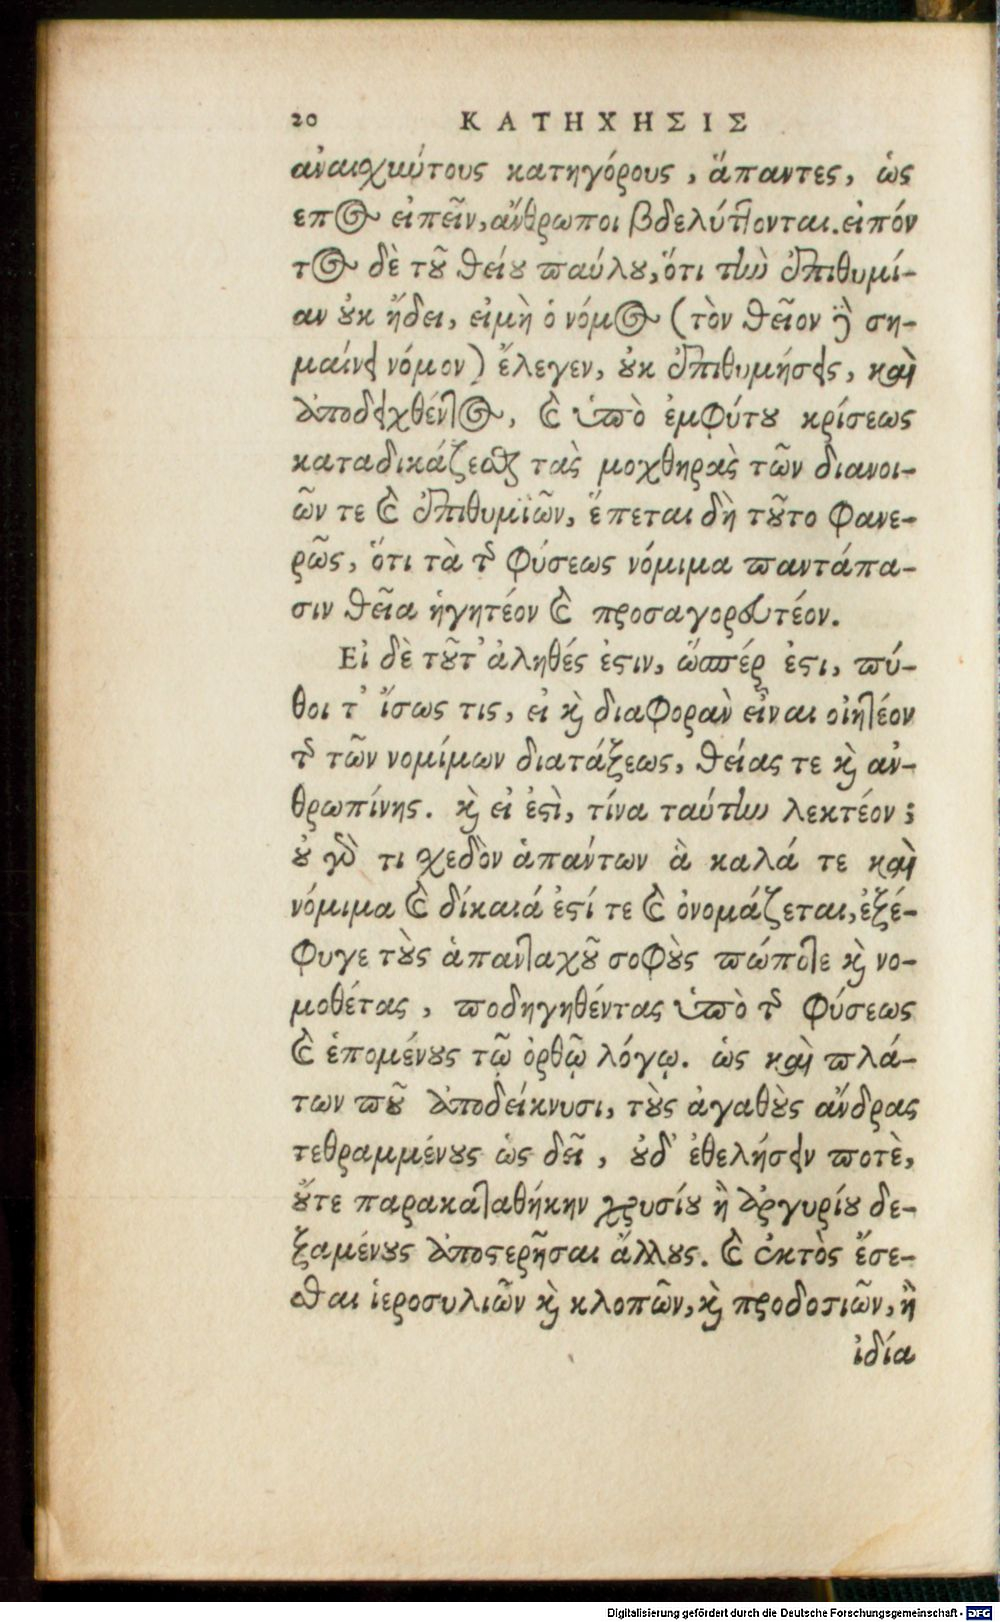 20 ΚΑΤΗΧΗΣΙΣ
ἀναισχιώτους κατηγόρους, ἅπαντες, ὡς
επος εἰπεῖν, ἄνθρωποι βδελύττονται. εἰπόν
τος δὲ τοῦ θείου παύλου, ὅτι τὴν ἐπιθυμί-
αν οὐκ ᾔδει, εἰμὴ ὁ νόμος (τὸν θεῖον δὲ ση-
μαίνει νόμον) ἔλεγεν, οὐκ ἐπιθυμήσεις, καὶ
ἀποδειχθέντος, καὶ ὑπὸ ἐμφύτου κρίσεως
καταδικάζεσθαι τὰς μοχθηρὰς τῶν διανοι-
ῶν τε καὶ ἐπιθυμϊῶν, ἕπεται δὴ τοῦτο φανε-
ρῶς, ὅτι τὰ τῆς φύσεως νόμιμα παντάπα-
σιν θεῖα ἡγητέον καὶ προσαγορευτέον.
Εἰ δὲ τοῦτ' ἀληθές ἐστιν, ὥσπέρ ἐστι, πύ-
θοι τ' ἴσως τις, εἰ καὶ διαφορὰν εἶναι οἰητέον
τῆς τῶν νομίμων διατάξεως, θείας τε καὶ ἀν-
θρωπίνης. καὶ εἰ ἐστὶ, τίνα ταύτην λεκτέον;
οὐ γὰρ τι σχεδὸν ἁπάντων ἃ καλά τε καὶ
νόμιμα καὶ δίκαιά ἐστί τε καὶ ὀνομάζεται, ἐξέ-
φυγε τοὺς ἁπανταχοῦ σοφοὺς πώποτε καὶ νο-
μοθέτας, ποδηγηθέντας ὑπὸ τῆς φύσεως
καὶ ἑπομένους τῷ ὀρθῷ λόγῳ. ὡς καὶ πλά-
των ποῦ ἀποδείκνυσι, τοὺς ἀγαθοὺς ἄνδρας
τεθραμμένους ὡς δεῖ, οὐδ' ἐθελήσειν ποτὲ,
οὔτε παρακαταθήκην χρυσίου ἢ ἀργυρίου δε-
ξαμένους ἀποστερῆσαι ἄλλους. καὶ ἐκτὸς ἔσε-
σθαι ἱεροσυλιῶν καὶ κλοπῶν, καὶ προδοσιῶν, ἢ
ἰδία
Digitalisierung gefördert durch die Deutsche Forschungsgemeinschaft - DFG